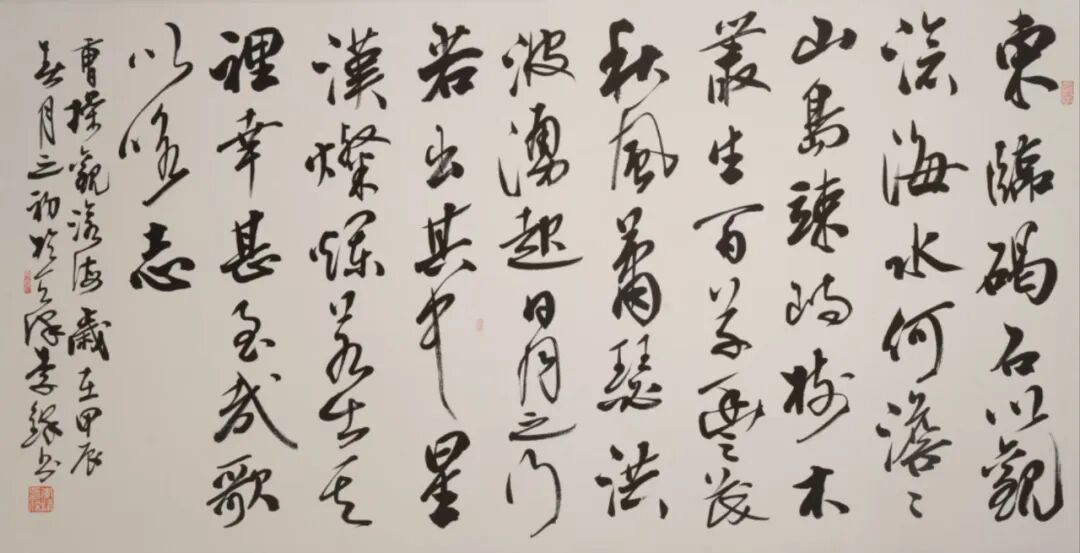 東臨碣石以觀
滄海水何澹〻
山島竦峙樹木
叢生百草豐茂
秋風蕭瑟洪
波湧起日月之行
若出其中星
漢燦爛若出其
裡幸甚至哉歌
以詠志
曹操觀滄海歲在甲辰
春月之初於天津李書